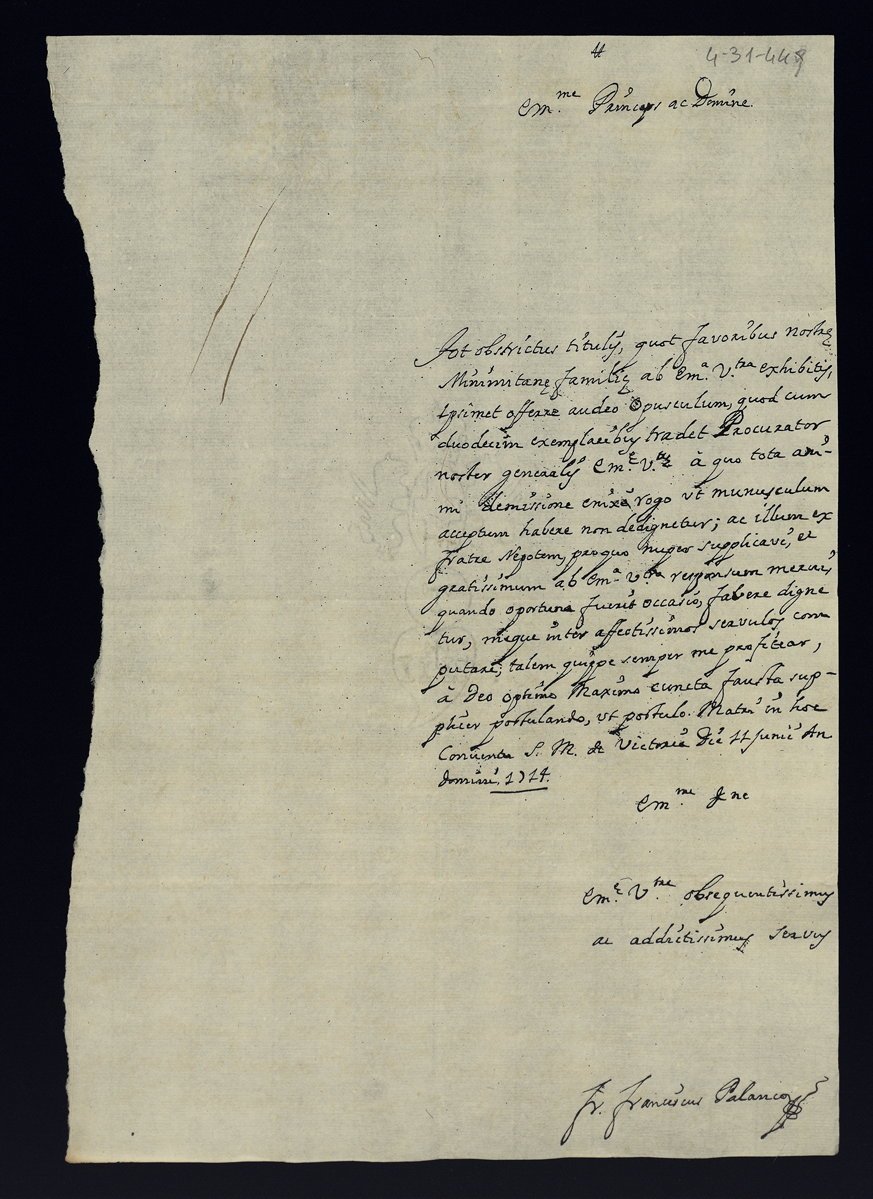 4-31-449
Em.me Princeps ac Domine.
Tot obstrictus titulis, quot favoribus nostrę
Minimitanę familię ab Em.a V.tra exhibitis,
ipsimet offerre audeo Opusculum, quod cum
duodecim exemplaribus tradet Procurator
noster generalis Em.ę V.trę à quo tota ani-
mi demissione enixè rogo vt munusculum
acceptum habere non dedignetur; ac illum ex
fratre Nepotem, pro quo nuper supplicavi, et
gratissimum ab Em.a V.tra responsum merui,
quando oportuna fuerit occasio, favere digne
tur, meque inter affectissimos servulos com
putare; talem quippe semper me profitear,
à Deo optimo Maximo cuncta fausta sup-
pliciter postulando, vt postulo. Matri in hoc
Conventu S. M. de Victoria Die 11 Junii An
domini, 1714.
Em.me Pne
Em.ę V.trae obsequentissimus
ac addictissimus servus
Fr. Franciscus Palanco